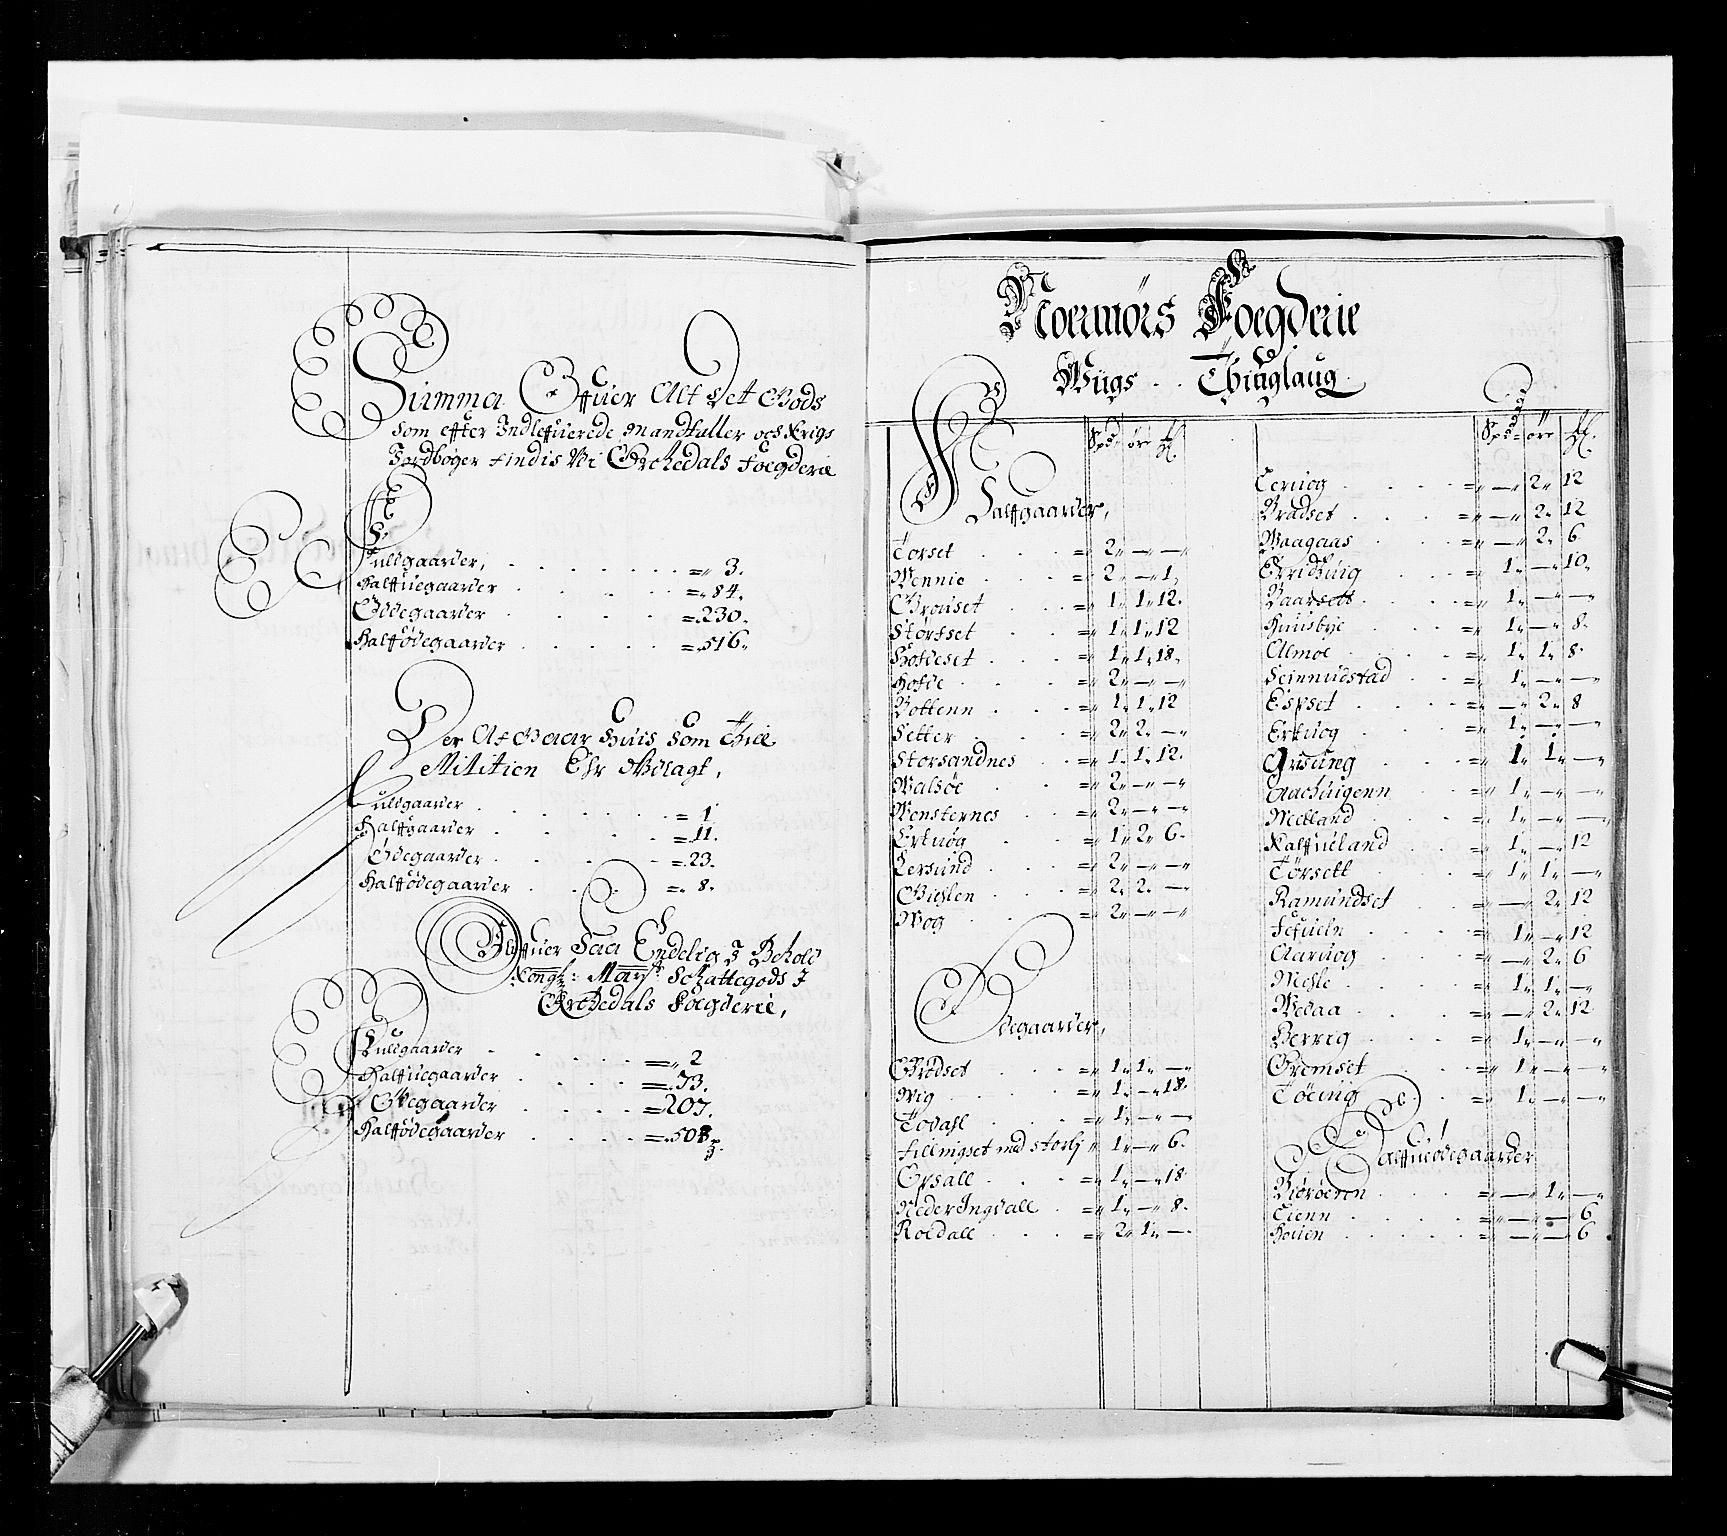 Summa Offuer Alt det Gods
som effter Indleffuerede Mandtaller och Krigs
Jordbøger findis Vdi Orchedals Foegderie
Fuldgaarder, = 3.
Halffuegaarder = 84.
Ødegaarder = 230.
Halffødegaarder = 516.
Der Af Baar huis som thill
Militien Ehr Ødlagt,
Fuldgaarder = 1
Halffgaarder = 11.
Ødegaarder = 23.
Halffødegaarder = 8.
Bliffuer Saa Endelig I Behold
Kongl: Mayts Schattegods I
Orchedals Foegderie,
Fuldgaarder = 2
Halffuegaarder = 73.
Ødegaarder = 207.
Halffødegaarder = 508
Noermørs Foegderie
Wiigs Thinglaug
Spd øre
Halffgaarder,
Torset = 2 — —
Wennie = 2 — 1
Brouset = 1 1 12.
Størset = 1 1 12
Hofdeset = 1 1 18.
Hofde = 2 — —
Bottenn = 1 1 12
Setter = 2 2 —
Storsandnes = 1 1 12.
Walsøe = 2 — —
Wensternes = 2 — —
Erkuog = 1 2 6.
Lersund = 2 — —
Giehlen = 2 2 —
Wog = 2 — —
Ødegaarder,
Brødset = 1 1 —
Wig = 1 — 18.
Todahl = 1 — —
Fillingset med Storli 1 — 6.
Opsall = 1 — 18
Neder Ingdall = 1 — 8.
Roldall = 2 1 —
Spd øre
Leruog = — 2 12
Bradset = — 2 12
Waagaas = — 2 6
Erridhuig = 1 — 10.
Baarsett = 1 — —
Huusbye = 1 — 8.
Almoe = 1 1 8.
Seinnudstad = 1 — —
Espset = — 2 8
Erkuog = 1 — —
Grisung = 1 1 —
Aachuigenn = 1 — —
Melland = 1 — —
Kalffueland = 1 — 12
Torsett = 1 1 —
Ramundset = — 2 12
Schueln = 1 — 12
Aaruog = — 2 6
Mehle = 1 1 —
Wedaa = — 2 12
Berrig = 1 — —
Gremset = 1 — —
Tøeuig = 1 — —
Halffuødegaarder
Biørøeren = — 1 —
Lienn = — — 6
Houen = — — 6